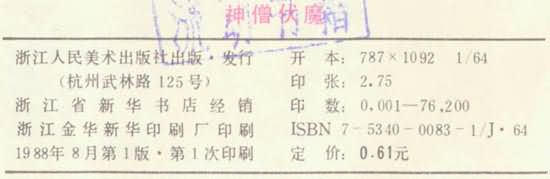 神僧伏魔
浙江人民美术出版社出版·发行
(杭州武林路125号)
浙江省新华书店经销
浙江金华新华印刷厂印刷
1988年8月第1版·第1次印刷
开本：787×1092 1/64
印张：2.75
印数：0,001—76,200
ISBN 7-5340-0083-1/J·64
定价：0.61元